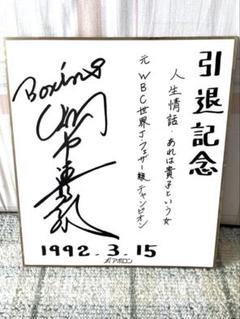 引退記念
人生情話・あれは貴子という女
元WBC世界Jフェザー級チャンピオン
Boxing
1992.3.15
アポロン